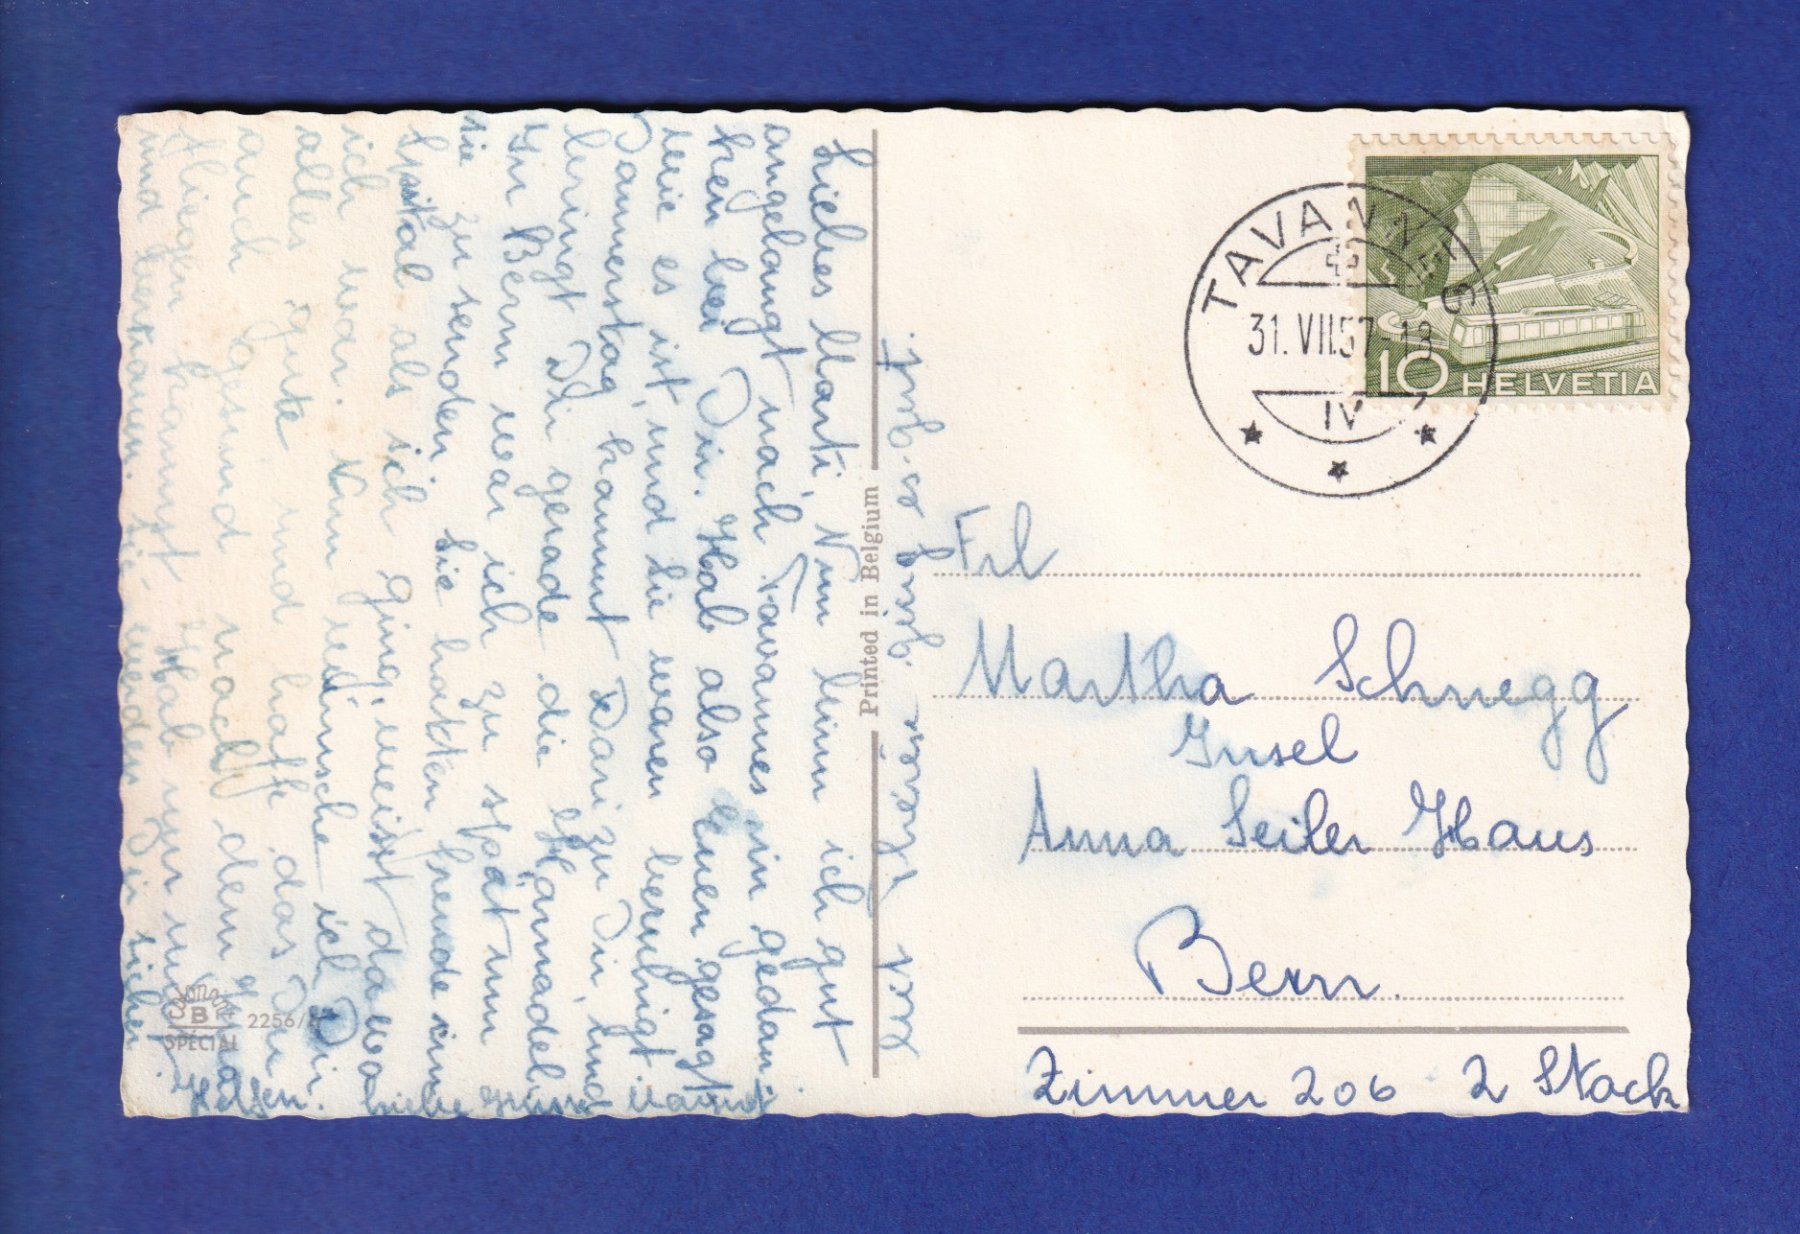 Liebes Marti, Nun bin ich gut
angelangt nach Tavannes in gedan-
ken bei Dir. Hab also Ihnen gesagt
wie es ist, und sie waren beruhigt.
Donnerstag kommt Dari zu Dir, und
bringt Dir gerade die
In Bern war ich zu spät um
sie zu senden. Sie hatten Freude im
Spital als ich ging, weisst da wo
ich war. Nun wünsche ich Dir
alles gute und hoffe das Du
auch gesund nach dem
fliegen kannst. Hab nur mut
und vertrauen. Sie werden Dir sicher
Helfen. Liebe Grüsse
mit Thérése ging es gut.
Printed in Belgium
B
SPECIAL
2256/
TAVANNES
31.VII.57-18
IV
10 HELVETIA
Frl
Martha Schnegg
Insel
Anna Seiler Haus
Bern.
Zimmer 206 2 Stock